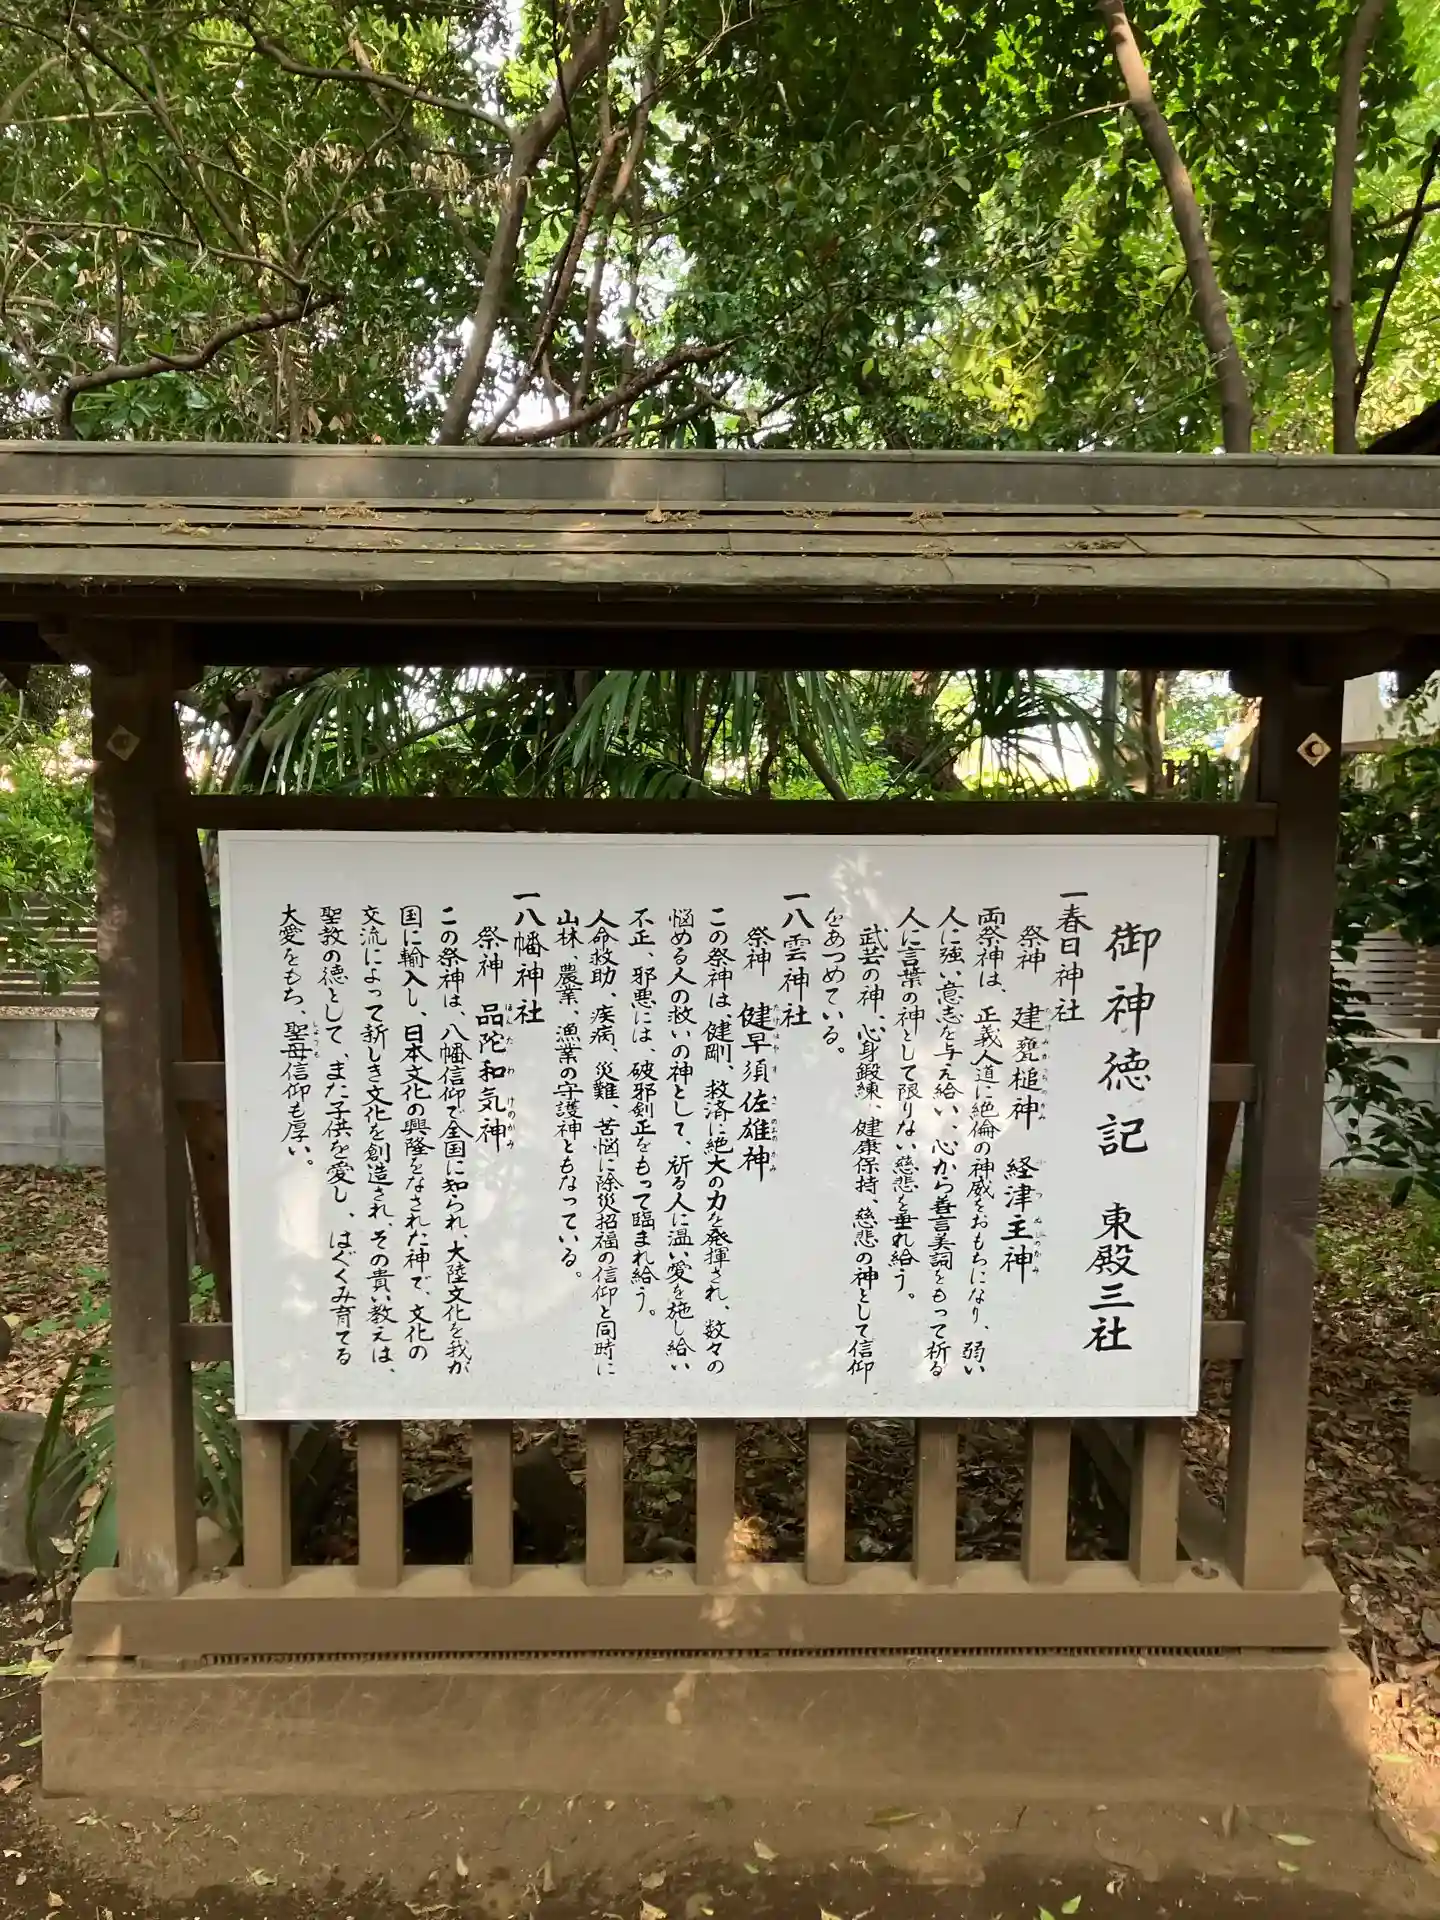 御神徳記　東殿三社
一春日神社
祭神　建甕槌神　経津主神
両祭神は、正義人道に絶倫の神威をおもちになり、弱い
人に強い意志を与え給い、心から善言美詞をもって祈る
人に言葉の神として限りない慈悲を垂れ給う。
武芸の神、心身鍛練、健康保持、慈悲の神として信仰
をあつめている。
一八雲神社
祭神　健早須佐雄神
たけはやすさのおのかみ
この祭神は、健剛、救済に絶大の力を発揮され、数々の
悩める人の救いの神として、祈る人に温い愛を施し給い
不正、邪悪には、破邪剣正をもって臨まれ給う。
人命救助、疾病、災難、苦悩に除災招福の信仰と同時に
山林、農業、漁業の守護神ともなっている。
一八幡神社
祭神　品陀和気神
ほんだわけのかみ
この祭神は、八幡信仰で全国に知られ、大陸文化を我が
国に輸入し、日本文化の興隆をなされた神で、文化の
交流によって新しき文化を創造され、その貴い教えは、
聖教の徳として、また子供を愛し、はぐくみ育てる
大愛をもち、聖母信仰も厚い。